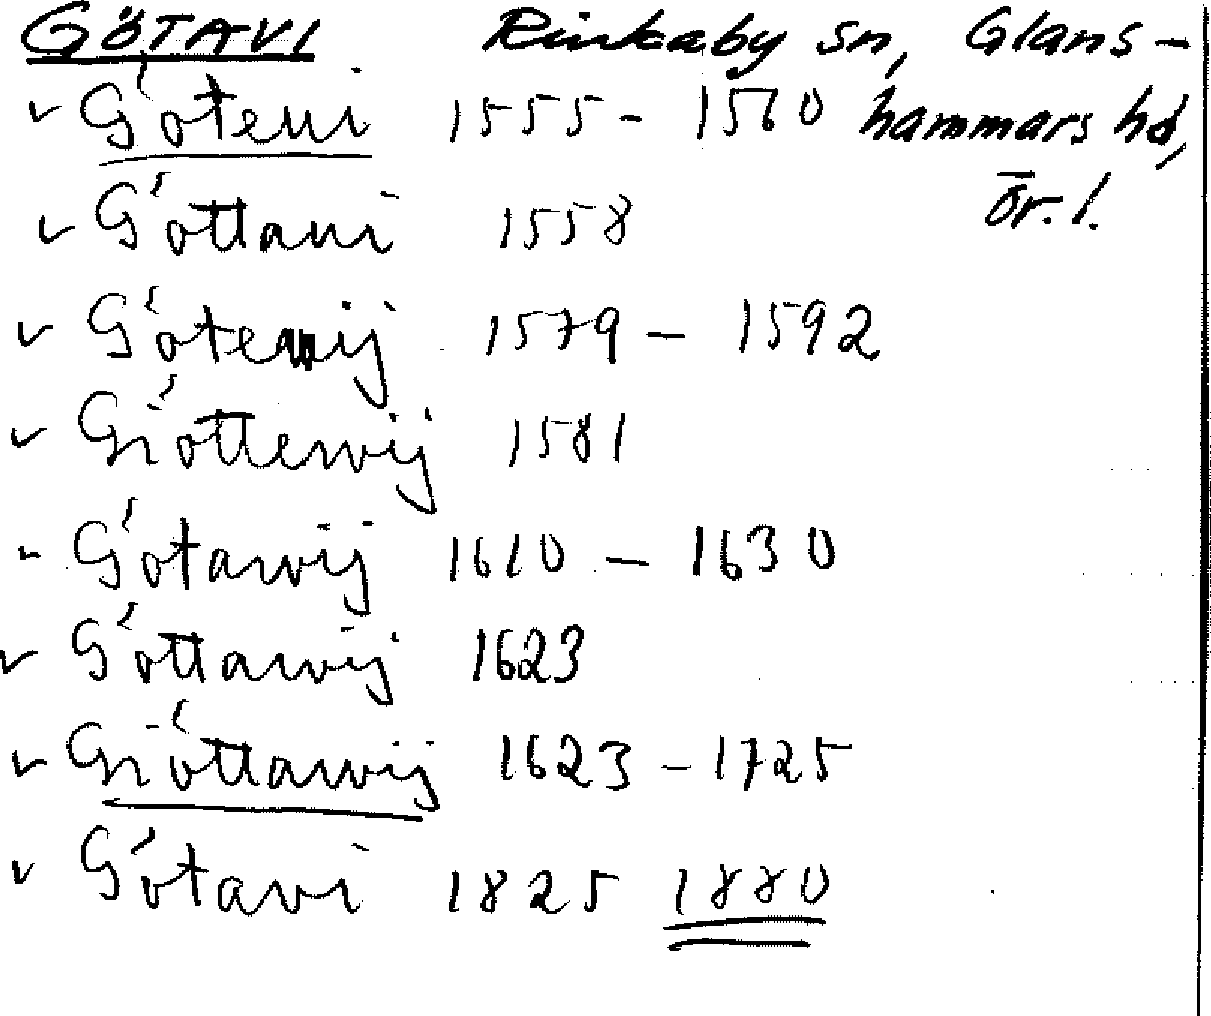 GÖTAVI Rinkaby sn, Glans-
✓ Göteui 1555 - 1560 hammars hd,
✓ Göttaui 1558 Ör. l.
✓ Göte ij 1579 - 1592
✓ Giöttewij 1581
✓ Götawij 1610 - 1630
✓ Göttawij 1623
✓ Giöttawij 1623 - 1725
✓ Götavi 1825 1880